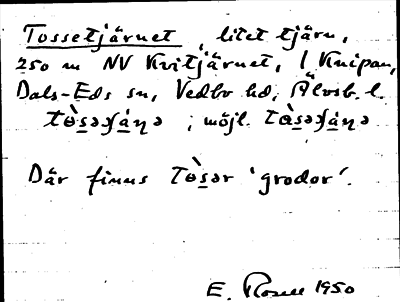 Tossetjärnet, litet tjärn,
250 m NV Kvitjärnet, i Knipan,
Dals-Eds sn, Vedbo hd, Älvsb. l.
; möjl.
Där finns 'grodor'.
E. Rosell 1950